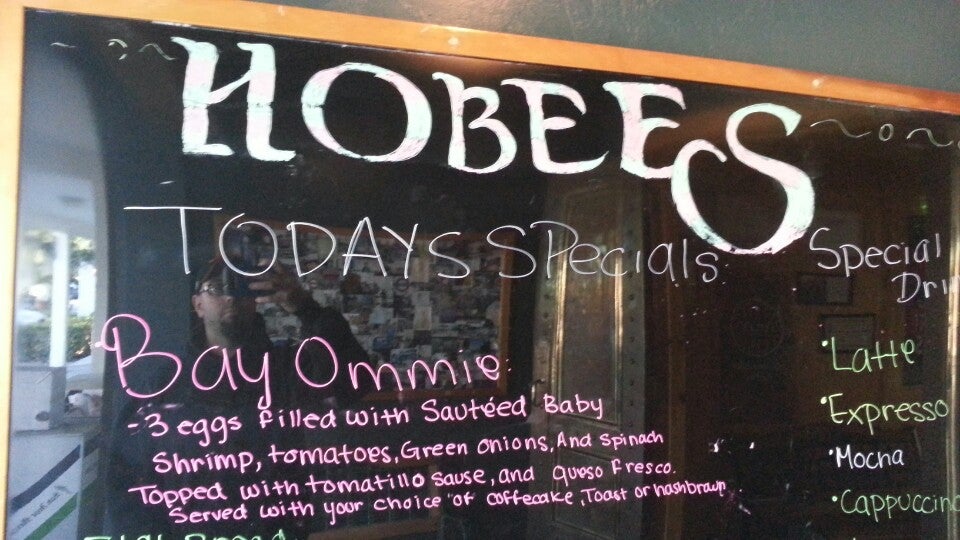 HOBEES
TODAYS SPecials:
Bay Ommie:
-3 eggs filled with Sautéed Baby
Shrimp, tomatoes, Green onions, And spinach
Topped with tomatillo sause, and Queso Fresco.
Served with your choice of coffeecake, Toast or hashbrown
Special
Dri
•Latte
•Expresso
•Mocha
•Cappuccino